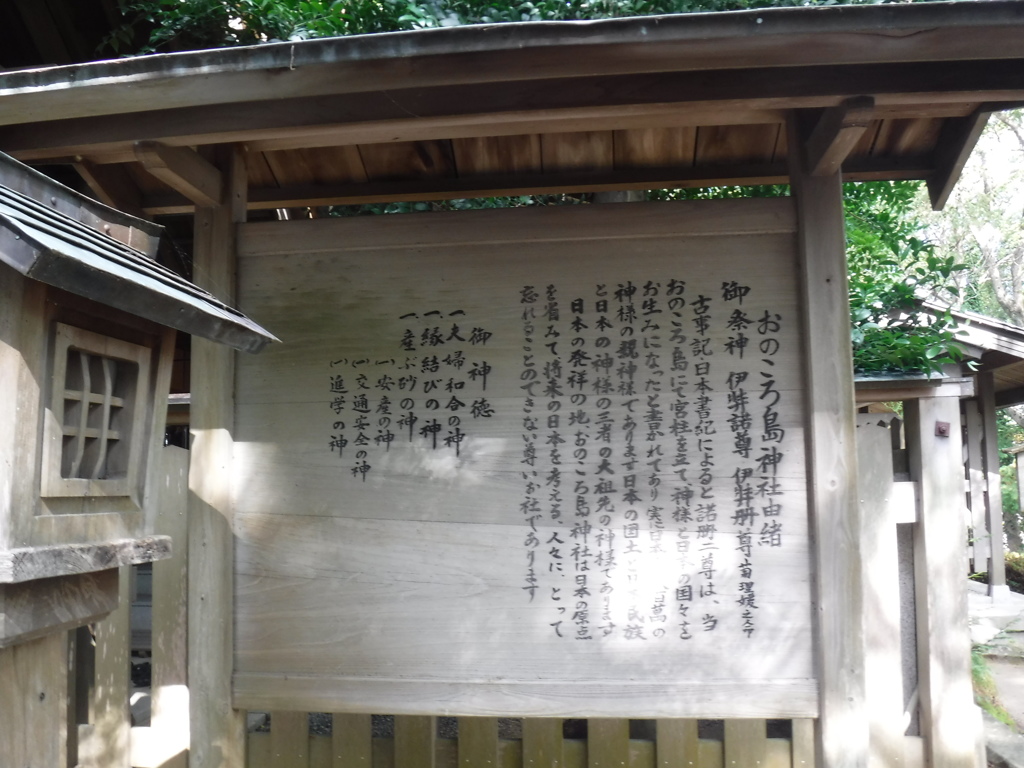 おのころ島神社由緒
御祭神 伊弉諾尊 伊弉册尊 菊理媛之命
古事記日本書紀によると諾册二尊は、当
おのころ島にて宮柱を立て神様と日本の国々を
お生みになったと書かれてあり実に日本 百萬の
神様の親神様であります日本の国土と日本民族
と日本の神様の三者の大祖先の神様であります
日本の発祥の地、おのころ島神社は日本の原点
を省みて将来の日本を考える、人々に、とって
忘れることのできない尊いお社であります
御神徳
一、夫婦和合の神
一、縁結びの神
一、産ぶ砂の神
(一)安産の神
(一)交通安全の神
(一)進学の神